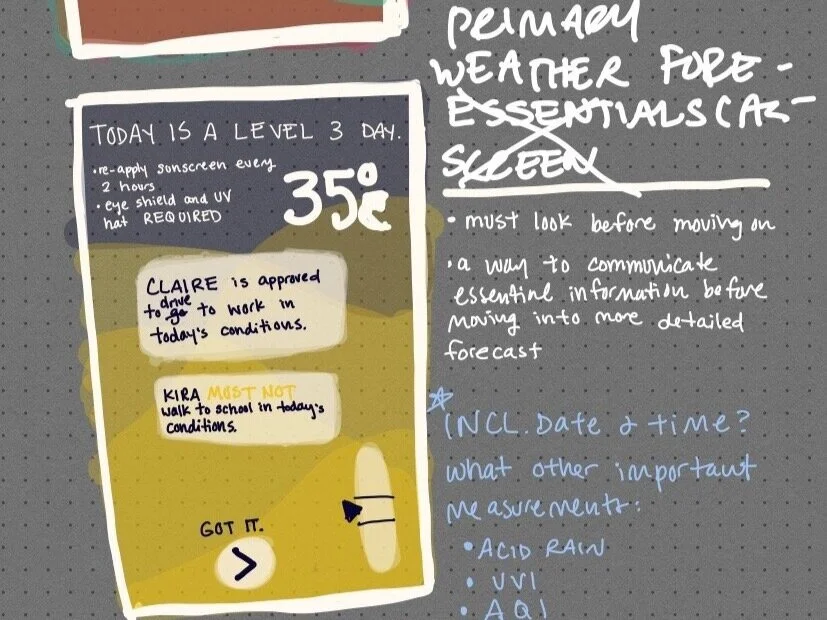 TODAY IS A LEVEL 3 DAY.
• re-apply sunscreen every
2 hours
• eye shield and UV
hat REQUIRED
35°C
CLAIRE is approved
to drive go to work in
today's conditions.
KIRA MUST NOT
walk to school in today's
conditions.
GOT IT.
>
PRIMARY
WEATHER FORE-
ESSENTIALS CAST
SCREEN
• must look before moving on
• a way to communicate
essential information before
moving into more detailed
forecast
INCL. Date & time?
what other important
measurements:
• ACID RAIN
• UVI
• AQI